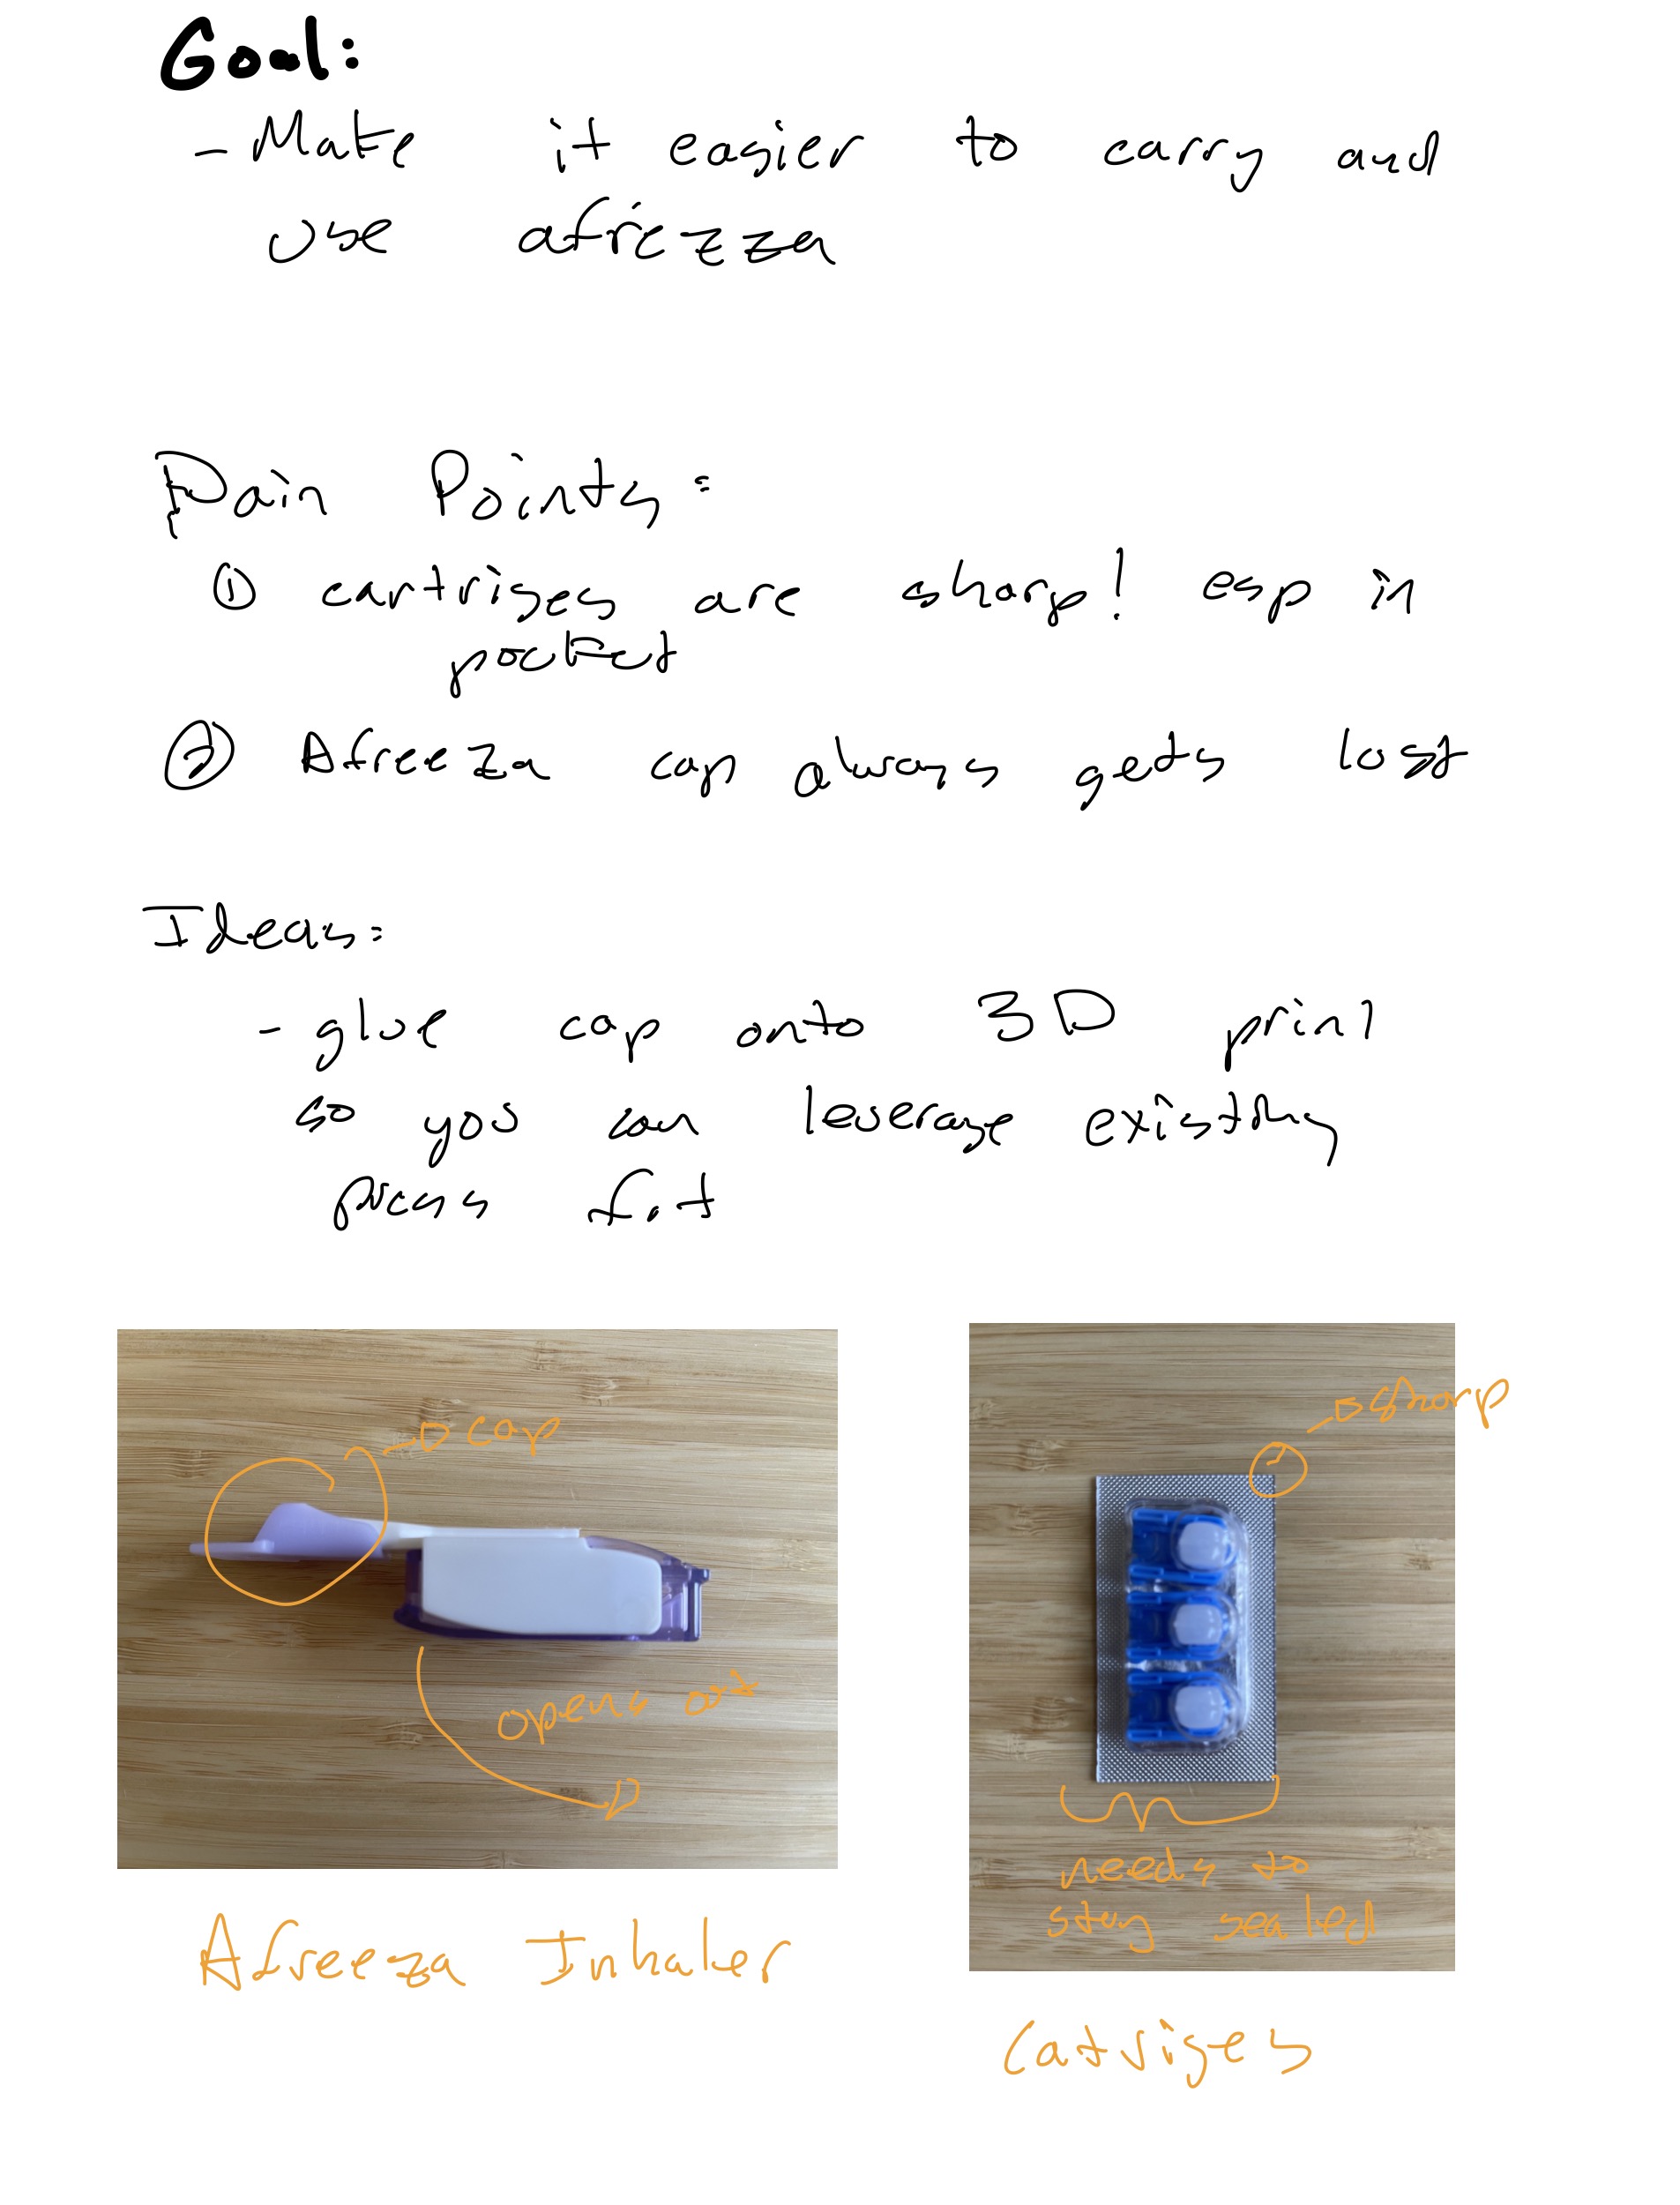 Goal:
- Make it easier to carry and
use afrezza
Pain Points:
① cartriges are sharp! esp in
pocket
② Afreeza cap always gets lost
Ideas:
- glue cap onto 3D print
so you can leverage existing
press fit
cap
opens out
Afreeza Inhaler
sharp
needs to
stay sealed
Catriges